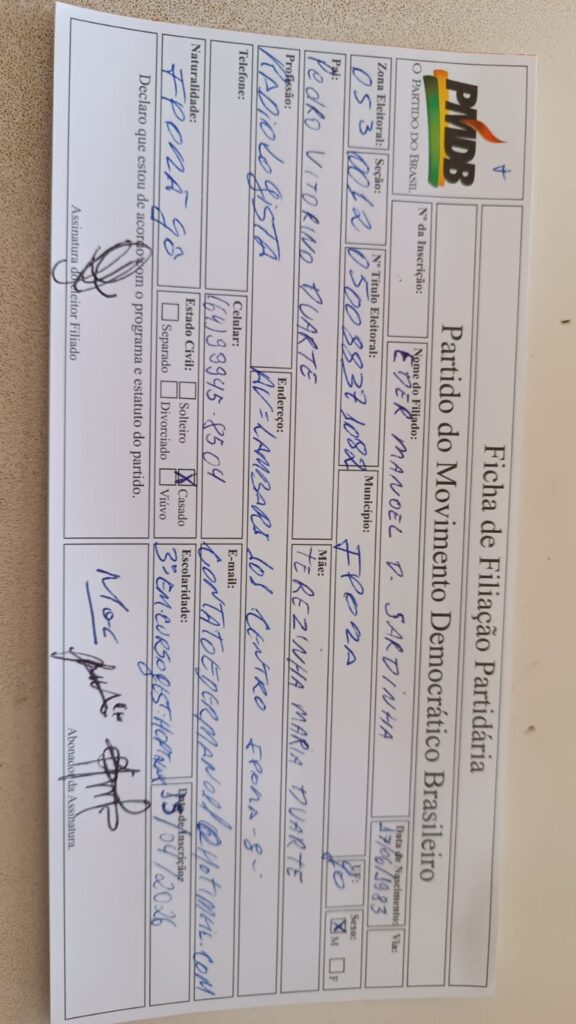 PMDB
O PARTIDO DO BRASIL
Ficha de Filiação Partidária
Partido do Movimento Democrático Brasileiro
Nº da Inscrição:
Nome do Filiado: EDER MANOEL D. SARDINHA
Data de Nascimento: 17/06/1983
Via:
Zona Eleitoral: 053
Seção: 0012
Nº Título Eleitoral:
Município: IPORA
UF: GO
Sexo: X M F
Pai: PEDRO VITORINO DUARTE
Mãe: TEREZINHA MARIA DUARTE
Profissão: RADIOLOGISTA
Endereço: CENTRO IPORA-GO
Telefone:
Celular: (64) 99945-8504
E-mail:
Naturalidade:
Estado Civil: Solteiro X Casado
Separado Divorciado Viúvo
Escolaridade:
Data de Inscrição: /04/2026
Declaro que estou de acordo com o programa e estatuto do partido.
Assinatura do Eleitor Filiado
Abonador da Assinatura.